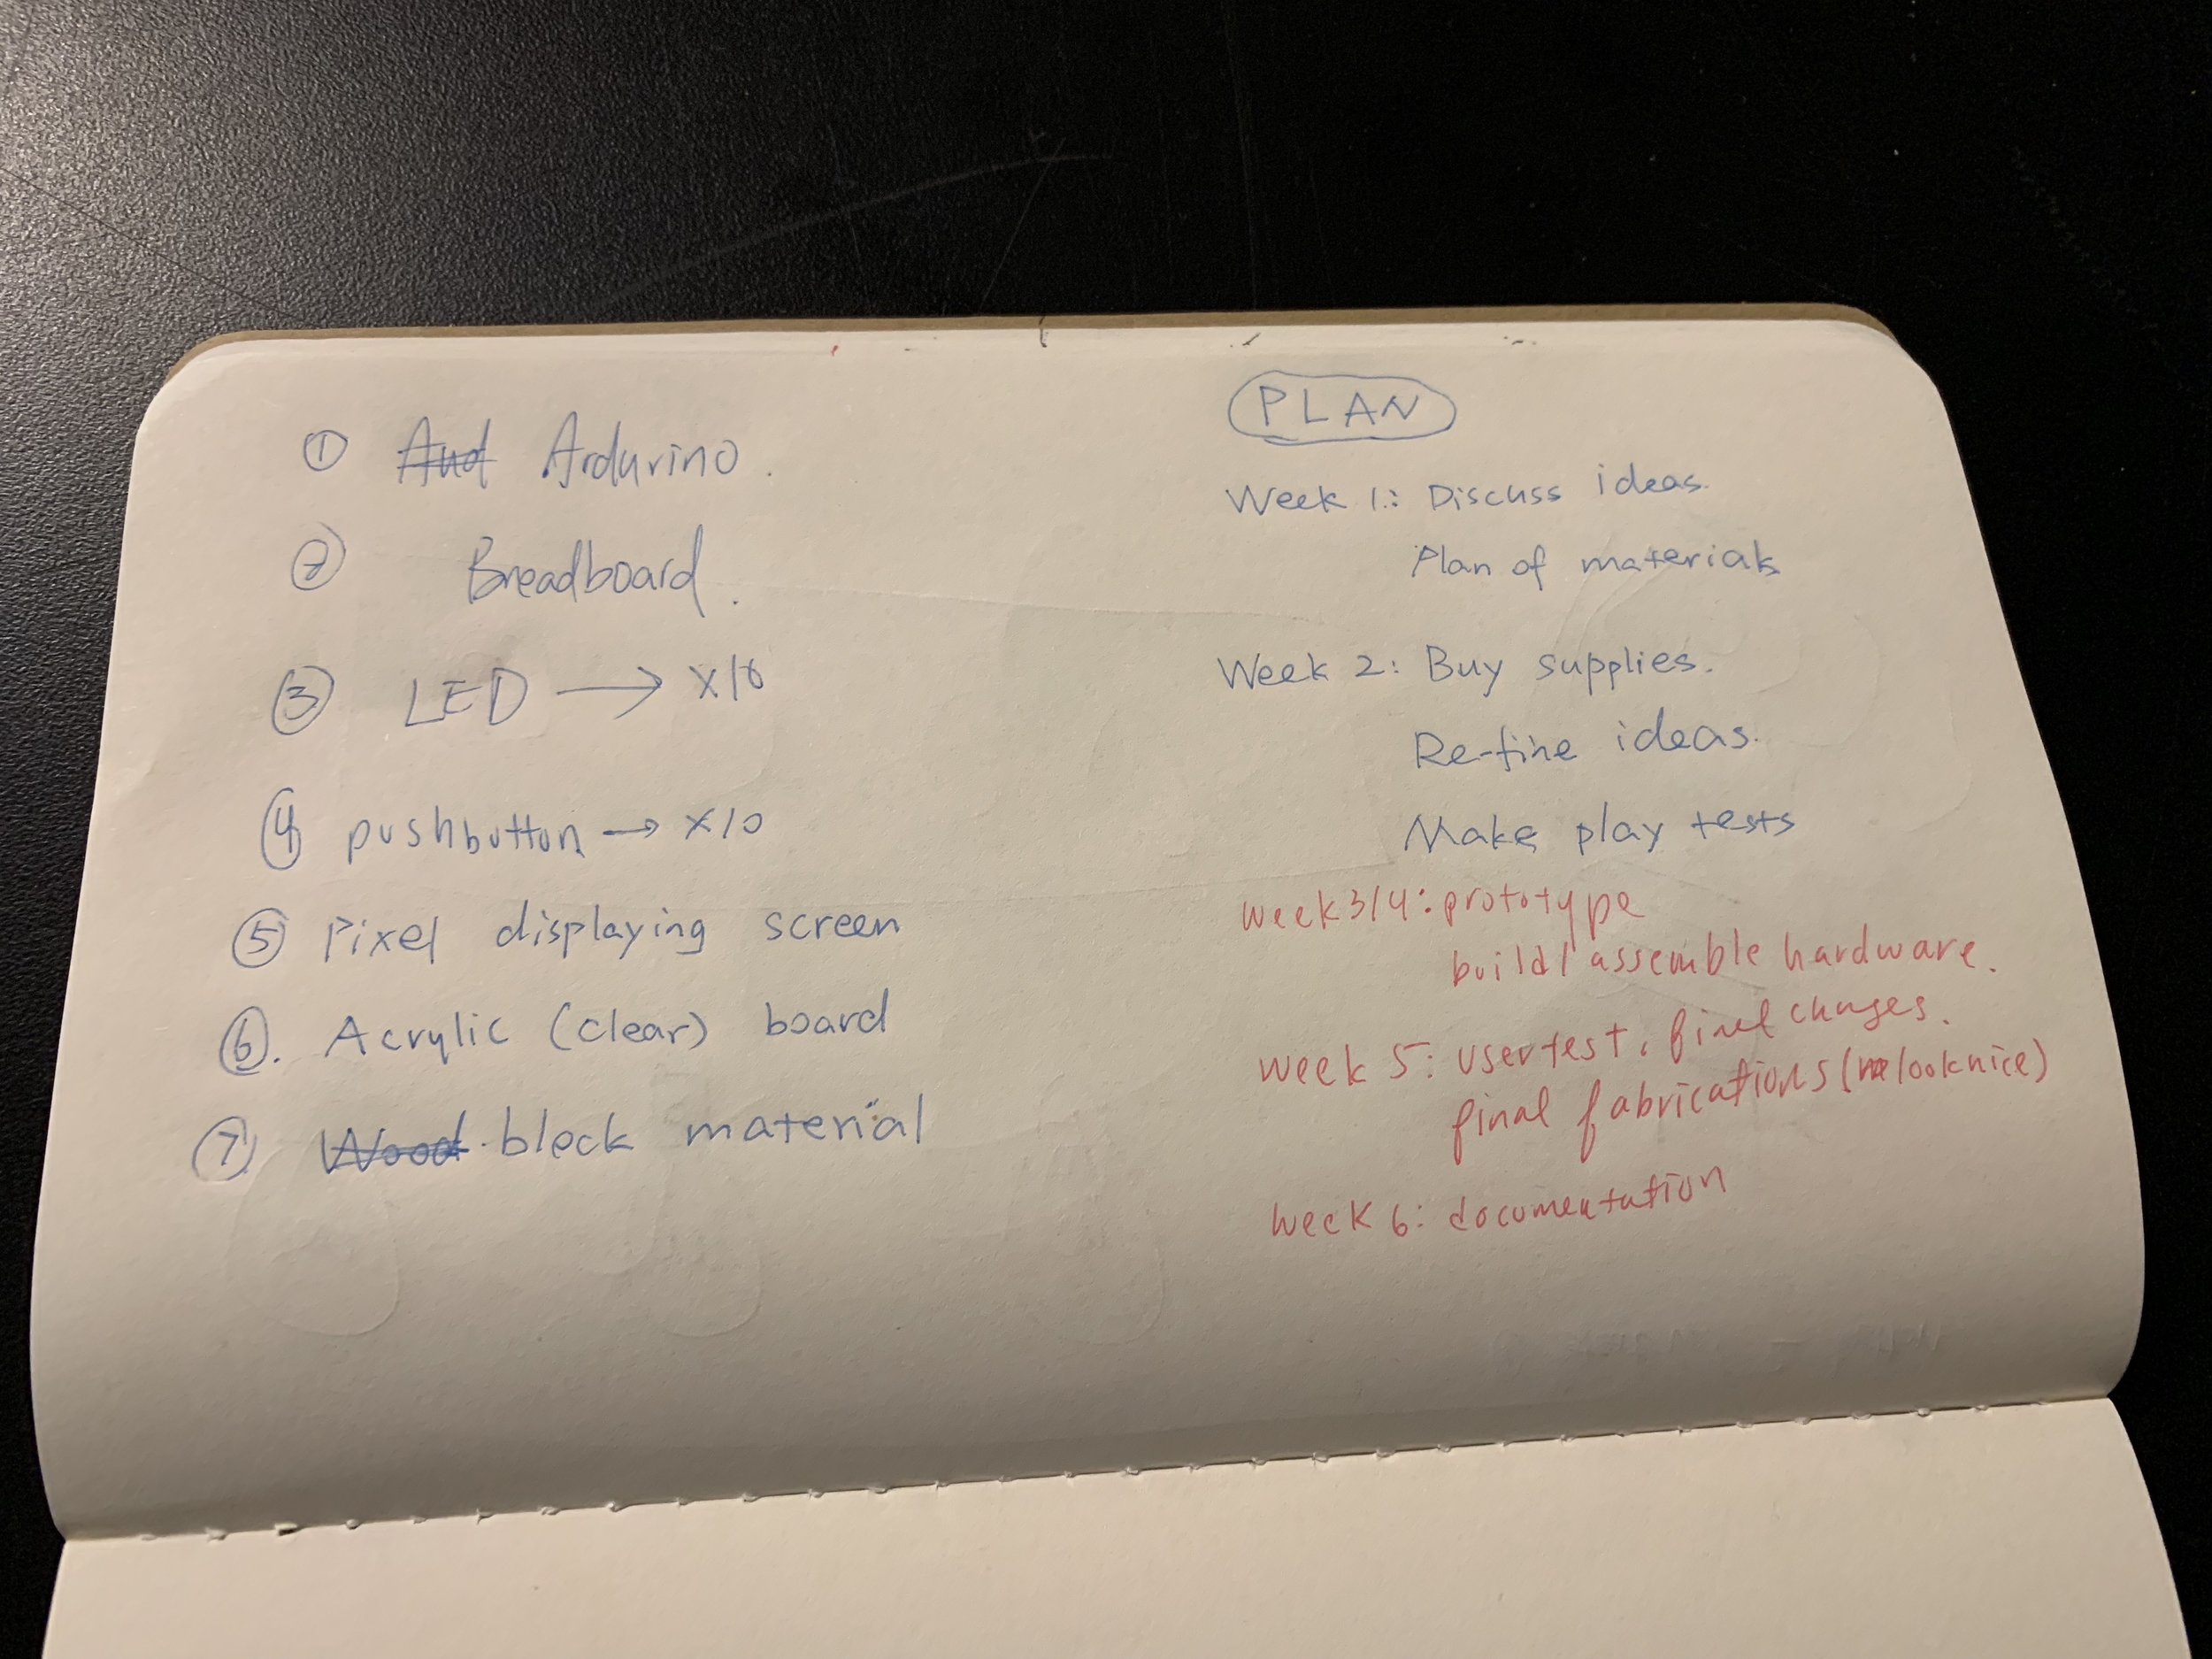 ① Ardurino.
② Breadboard.
③ LED → x10
④ pushbutton → x10
⑤ Pixel displaying screen
⑥. Acrylic (clear) board
⑦ Wood block material
PLAN
Week 1.: Discuss ideas.
Plan of materials
Week 2: Buy supplies.
Re-fine ideas.
Make play tests
week 3/4: prototype
build/assemble hardware.
week 5: user test, final changes.
final fabrications (look nice)
week 6: documentation